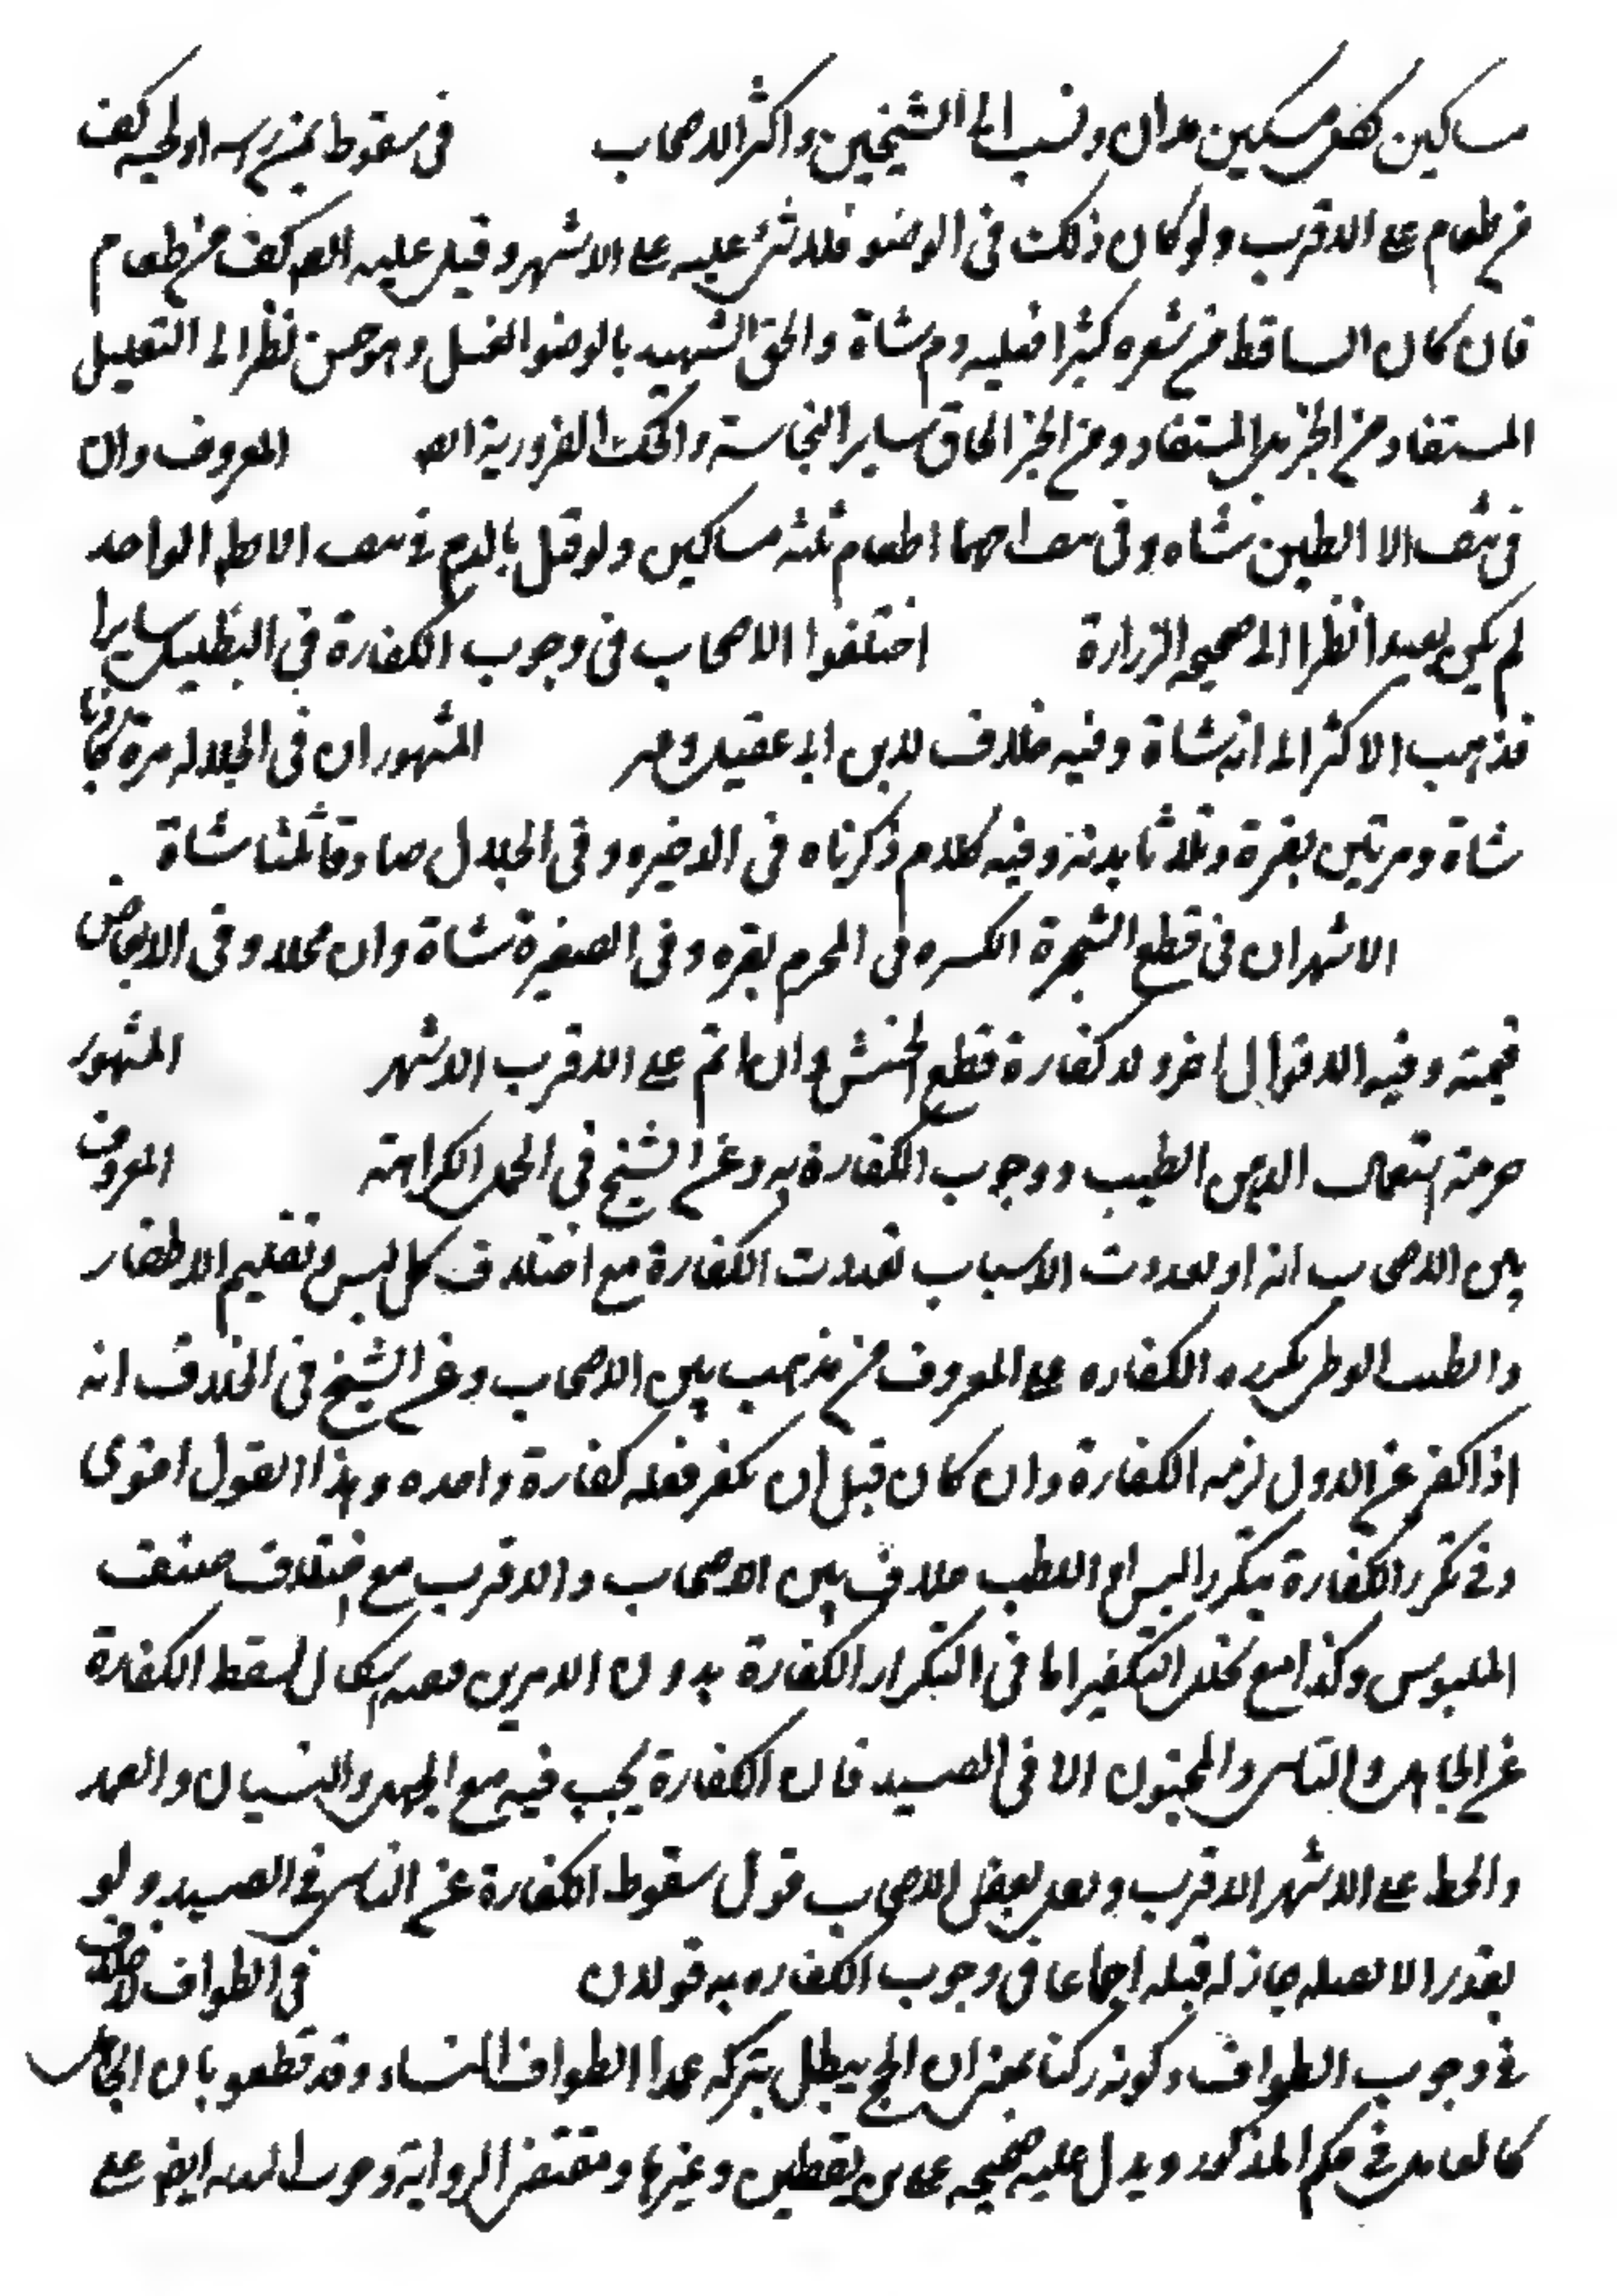 مساكين لكل مسكين مدان ونسب الى الشيخين واكثر الاصحاب في سقوط من راسه او لحيته كف
من طعام على الاقرب ولو كان ذلك في الوضو فلا شئ عليه على الاشهر وقيل عليه الصه كف من طعام
فان كان الساقط من شعره كثيرا فعليه دم شاة والحق الشهيد بالوضو الغسل وهو حسن نظرا الى التعليل
المستفاد من الخبر بل المستفاد من الخبر الحاق ساير النجاسة والحك الضرورية الصه المعروف وان
في نتف الا الطين شاه وفي نتف احدهما اطعام ثلثه مساكين ولو قيل بالدم في نتف الابط الواحد
لم يكن بعيدا نظرا الى صحيحه الزرارة اختلفوا الاصحاب في وجوب الكفارة في التظليل سايرا
فذهب الاكثر الى انه شاة وفيه خلاف لابن ابي عقيل المشهور ان في الجلاله مرة كاذبا
شاة ومرتين بقرة وثلاثا بدنه وفيه كلام ذكرناه في الاخيره وفي الجدال صادقا ثلثا شاة
الاشهر ان في قطع الشجرة الكسره في المحرم بقره وفي الصغيرة شاة وان محلا وفي الابعاض
قيمته وفيه الاقوال اخر ولا كفارة قطع الحشيش وان اثم على الاقرب الاشهر المشهور
حرمة استعمال الدهن الطيب ووجوب الكفارة به وعن الشيخ في الحمل الكراهته المعروف
بين الاصحاب انه او تعددت الاسباب تعددت الكفارة مع اختلاف كل لبس وتقليم الاظفار
والطيب الوطى يكرره الكفاره على المعروف من مذهب بين الاصحاب وعن الشيخ في الخلاف انه
اذا كفر عن الاول لزمه الكفارة وان كان قبل ان يكفر فعليه كفارة واحده وهذا القول اقوى
وفي تكرر الكفارة بتكرر البس او الطيب خلاف بين الاصحاب والاقرب مع اختلاف صنف
الملبوس وكذا مع تخلل التكفير اما في التكرار الكفارة بدون الامرين ففيه اشكال لسقط الكفارة
عن الجاهل والناسي والمجنون الا في الصيد فان الكفارة يجب فيه مع الجهل والنسيان والعمد
والخطا على الاشهر الاقرب ونقل بعض الاصحاب قول سقوط الكفارة عن الناسي في الصيد ولو
بعذر الا تصله جاز له قبله اجماعا في وجوب الكفاره به قولان في الطواف لا خلاف
في وجوب الطواف وكونه ركنا بمعنى ان الحج يبطل بتركه عمدا الطواف النساء وقد قطعو بان الجاهل
كالعامد في حكم المذكور ويدل عليه صحيحه على بن يقطين وغيرها ومقتضى الرواية وجوب البدنه ايضا على